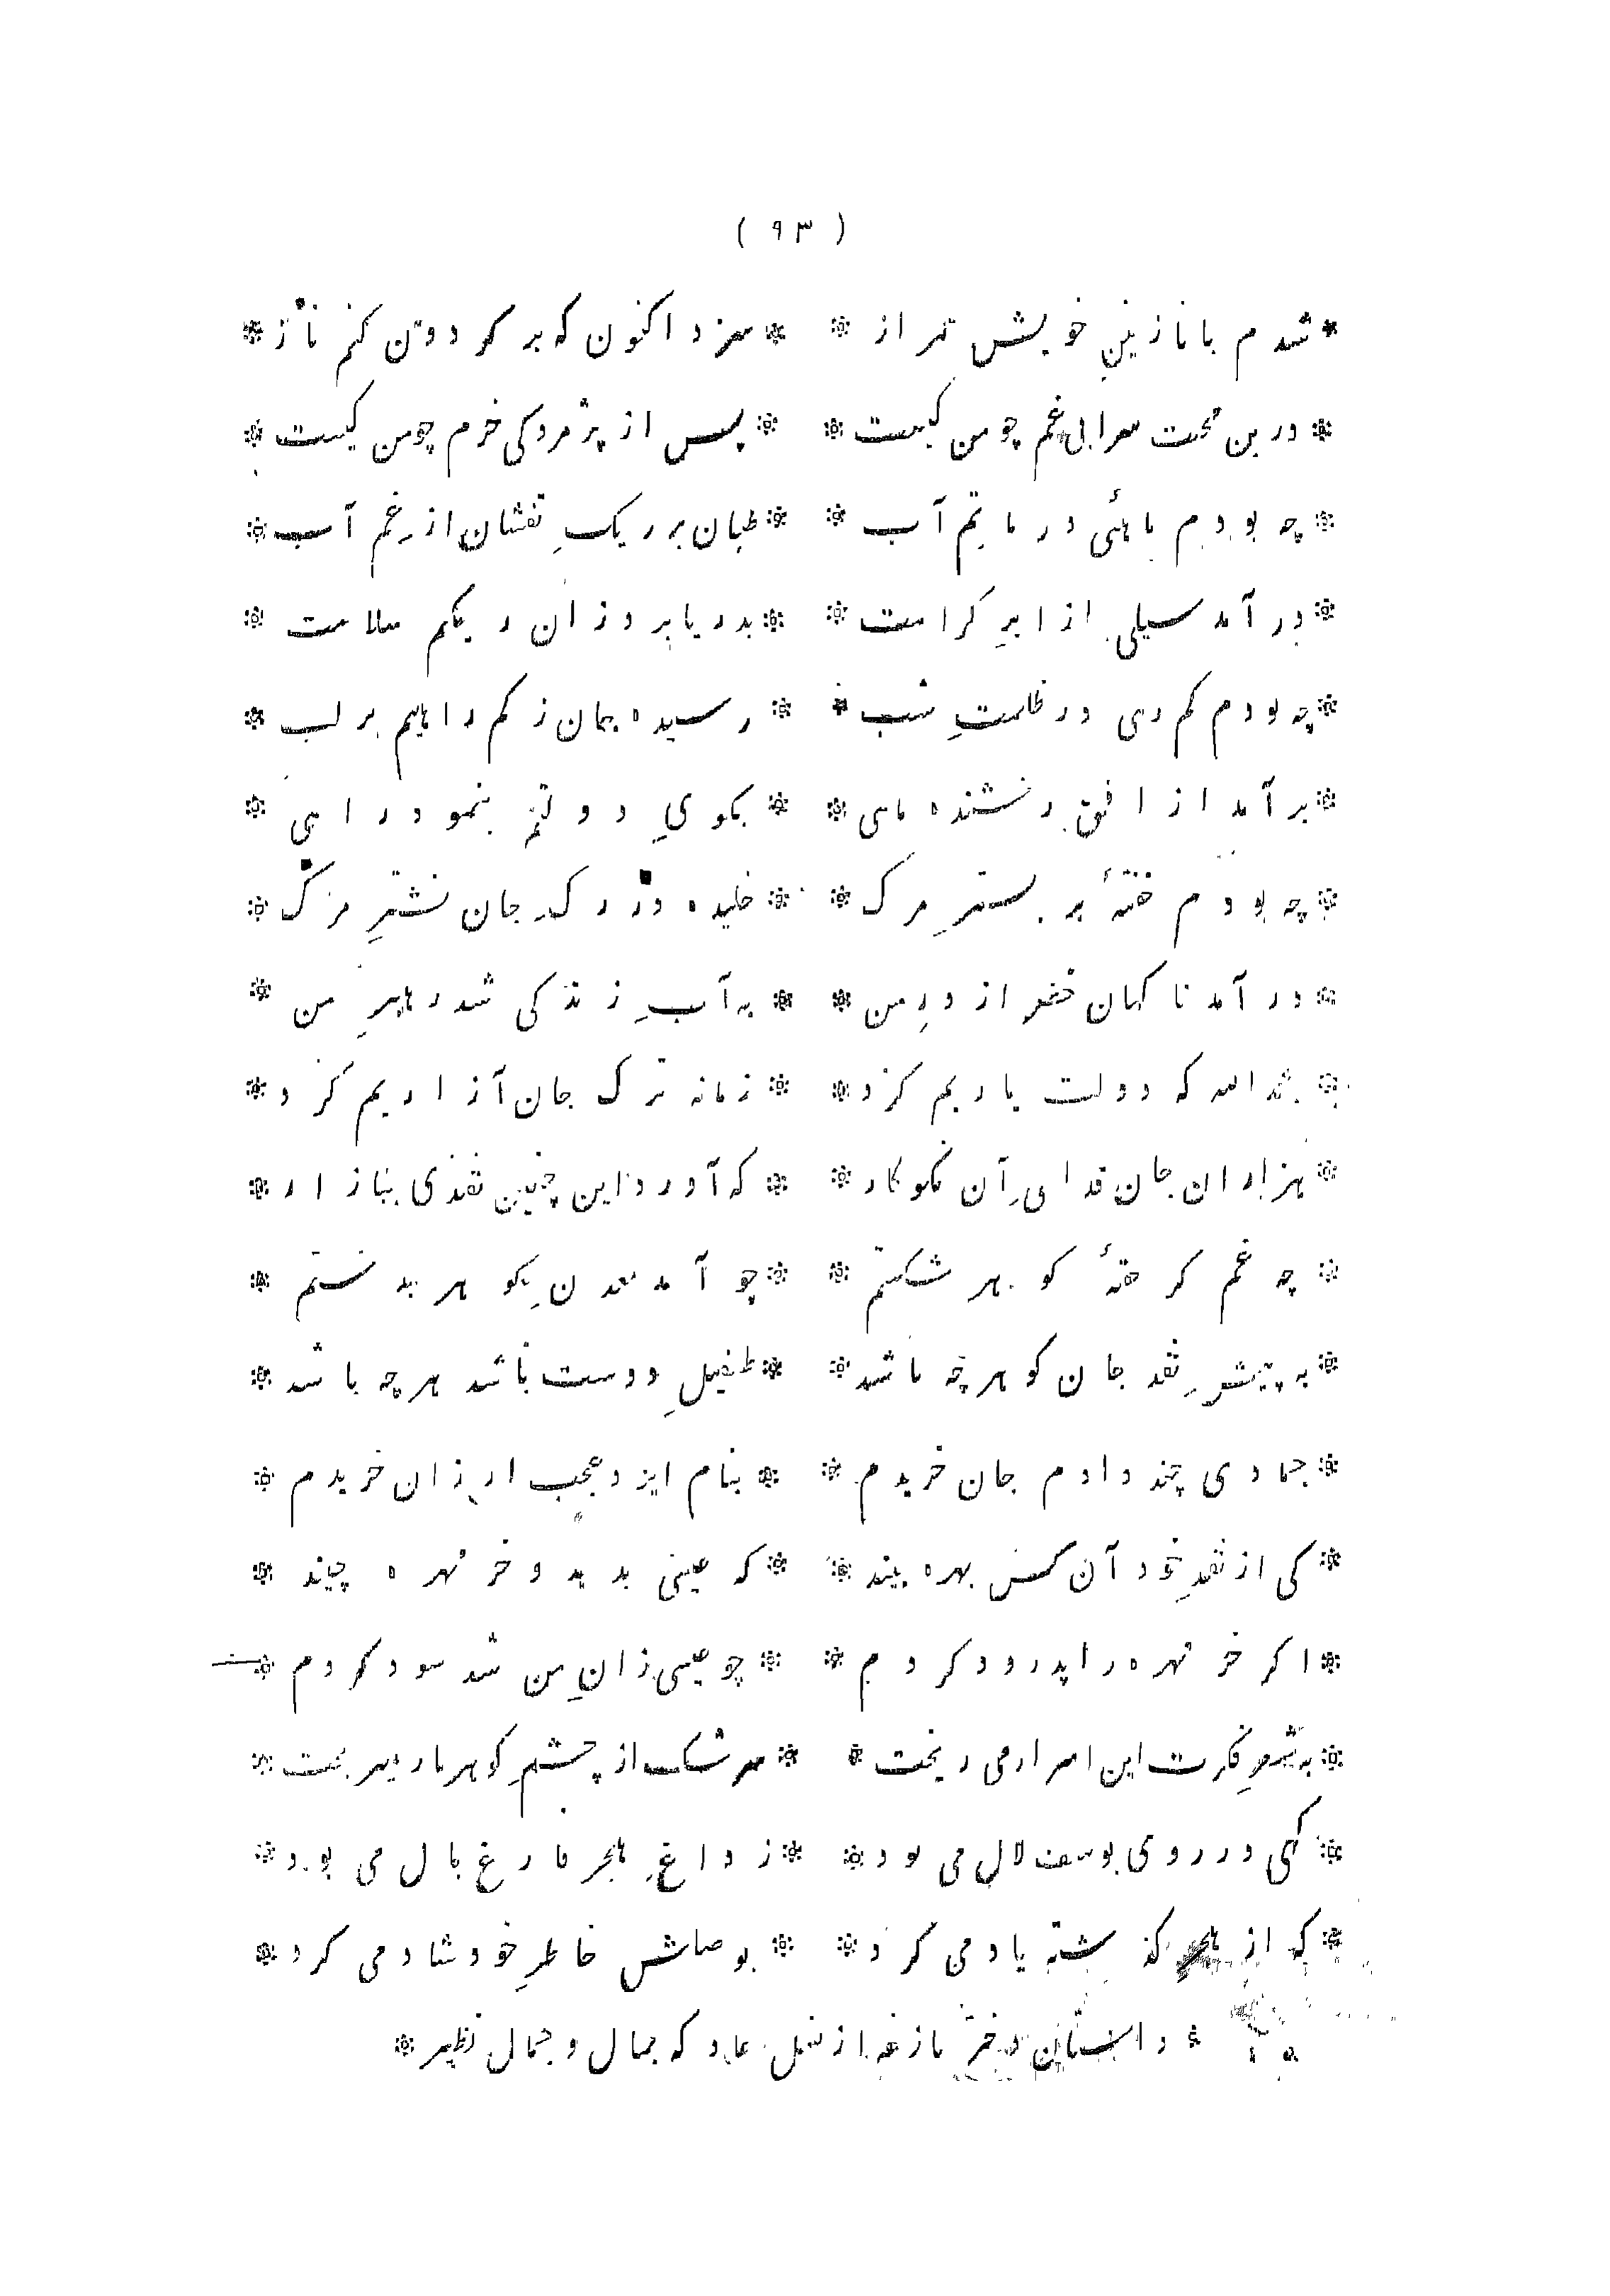 ( ۹۳ )
* شدم با نازنین خویش همراز * * سزد اکنون که بر کردون کنم ناز *
* درین محنت سرا بی غم چو من کیست * * پس از پژمردکی خرم چو من کیست *
* چه بودم ماهئی در ماتم آب * * طپان بر ریکِ تفشان از غم آب *
* در آمد سیلی از ابرِ کرامت * * بدریا برد زان ریکم سلامت *
* چه بودم کم رهی در ظلمتِ شب * * رسیده جان ز کم راهیم بر لب *
* برآمد از افق رخشنده ماهی * * بکویِ دولتم بنمود راهی *
* چه بودم خفتهٔ بر بسترِ مرک * * خلیده در رکِ جان نشترِ مرک *
* در آمد ناکهان خضر از درِ من * * به آبِ زندکی شد رهبرِ من *
* بحمدالله که دولت یاریم کرد * * زمانه ترک جان آزاریم کرد *
* هزاران جان فدایِ آن نکوکار * * که آورد این چنین نقدی ببازار *
* چه غم کر حقهٔ کوهر شکستم * * چو آمد معدنِ کوهر بدستم *
* به پیشِ نقد جان کوهر چه باشد * * طفیلِ دوست باشد هرچه باشد *
* جمادی چند دادم جان خریدم * * بنام ایزد عجب ارزان خریدم *
* کی از نقدِ خود آن کس بهره بیند * * که عیسی بدهد و خر مهره چیند *
* اکر خر مهره را پدرود کردم * * چو عیسی زانِ من شد سود کردم *
* به شعرِ فکرت این اسرار می ریخت * * سرشک از چشمِ کوهربار میریخت *
* کهی در روی یوسف لال می بود * * ز داغِ هجر فارغ بال می بود *
* که از هجرِ کذشته یاد می کرد * * بوصلش خاطرِ خود شاد می کرد *
* داستان دختر بازغه از نسل عاد که بمال و جمال نظیر *